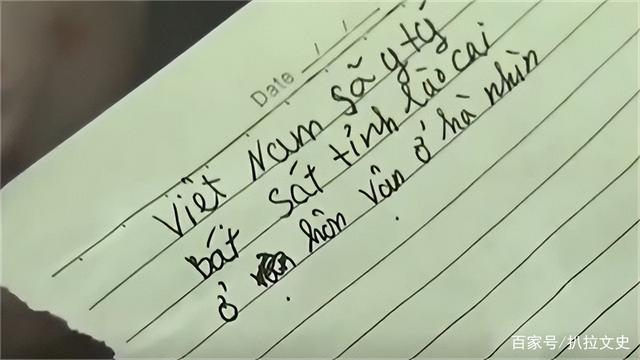 Date / /
Việt Nam sã y tý
bát sát tỉnh lào cai
ở hôn vân ở hà nhìn
百家号/扒拉文史